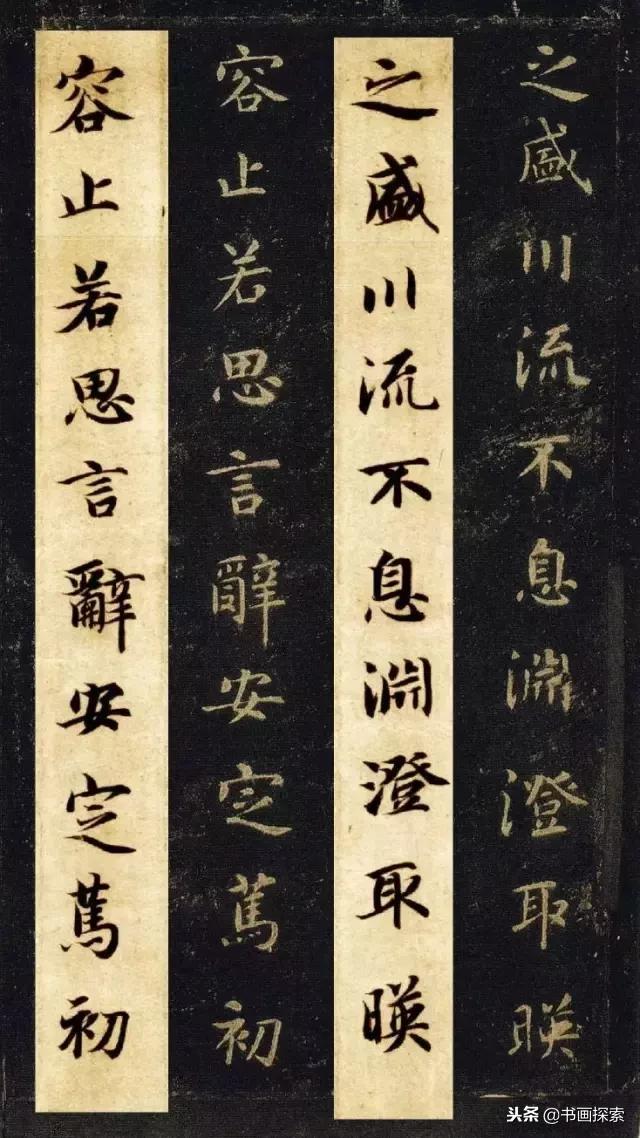 之盛川流不息淵澄取暎
之盛川流不息淵澄取暎
容止若思言辭安定篤初
容止若思言辭安定篤初
头条@书画探索